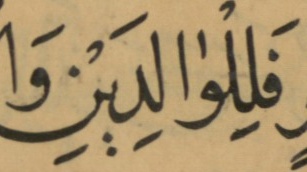 فَلِلْوٰالِدَيْنِ وَا